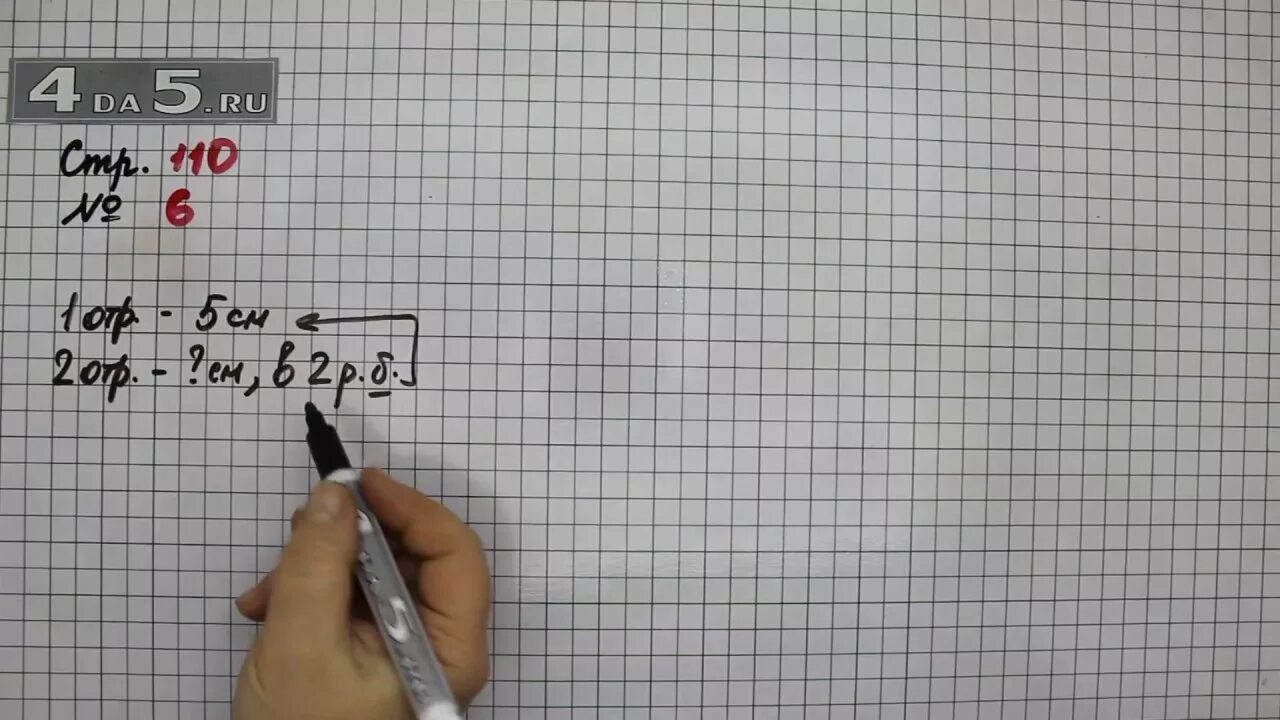 4DA5.RU
Стр. 110
№ 6
1 отр. - 5 см
2 отр. - ? см, в 2 р. б.